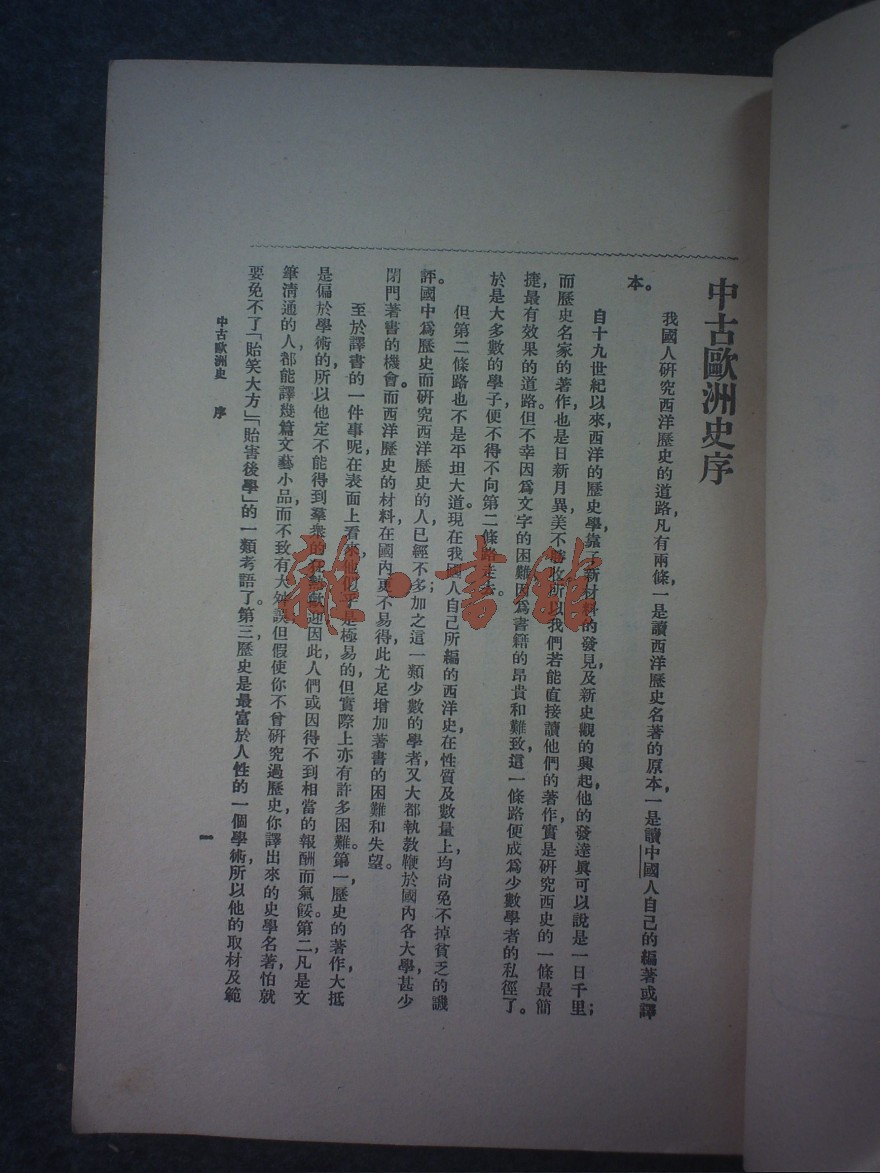 中古歐洲史序
我國人硏究西洋歷史的道路，凡有兩條，一是讀西洋歷史名著的原本，一是讀中國人自己的編著或譯
本。
自十九世紀以來，西洋的歷史學，靠了新材料的發見及新史觀的興起，他的發達眞可以說是一日千里；
而歷史名家的著作，也是日新月異，美不勝收。所以我們若能直接讀他們的著作，實是硏究西史的一條最簡
捷，最有效果的道路。但不幸因爲文字的困難，因爲書籍的昂貴和難致，這一條路便成爲少數學者的私徑了。
於是大多數的學子，便不得不向第二條路走去。
但第二條路也不是平坦大道。現在我國人自己所編的西洋史，在性質及數量上，均尙免不掉貧乏的譏
評。國中爲歷史而硏究西洋歷史的人，已經不多；加之這一類少數的學者，又大都執教鞭於國內各大學，甚少
閉門著書的機會。而西洋歷史的材料，在國內更不易得，此尤足增加著書的困難和失望。
至於譯書的一件事呢，在表面上看來，他似乎是極易的，但實際上亦有許多困難。第一，歷史的著作，大抵
是偏於學術的，所以他定不能得到羣衆的狂熱歡迎，因此人們或因得不到相當的報酬而氣餒。第二，凡是文
筆淸通的人，都能譯幾篇文藝小品，而不致有大舛誤，但假使你不曾硏究過歷史，你譯出來的史學名著，怕就
要免不了「貽笑大方」「貽害後學」的一類考語了。第三，歷史是最富於人性的一個學術，所以他的取材及範
中古歐洲史　序
一
雜·書館